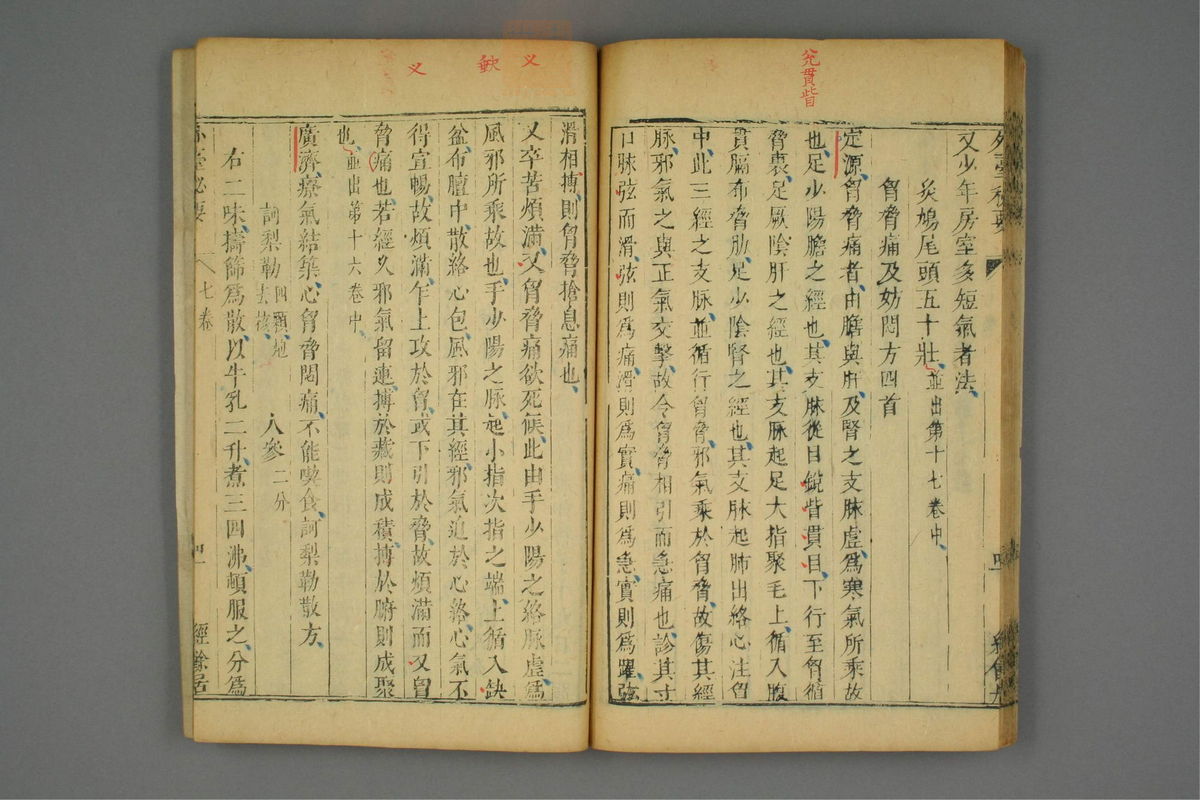 兊貫眥
又少年房室多短氣者法
灸鳩尾頭五十壯並出第十七卷中
胷脅痛及妨悶方四首
定源胷脅痛者由膽與肝及腎之支脉虛爲寒氣所乘故
也足少陽膽之經也其支脉從目銳眥貫目下行至胷循
脅裏足厥陰肝之經也其支脉起足大指聚毛上循入腹
貫膈布脅肋足少陰腎之經也其支脉起肺出絡心注胷
中此三經之支脉並循行胷脅邪氣乘於胷脅故傷其經
脉邪氣之與正氣交擊故令胷脅相引而急痛也診其寸
口脉弦而滑弦則爲痛滑則爲實痛則爲急實則爲躍弦
义
缺
义
滑相摶則胷脅搶息痛也
又卒苦煩滿叉胷脅痛欲死候此由手少陽之絡脉虛爲
風邪所乘故也手少陽之脉起小指次指之端上循入缺
盆布膻中散絡心包風邪在其經邪氣迫於心絡心氣不
得宣暢故煩滿乍上攻於胷或下引於脅故煩滿而叉胷
脅痛也若經久邪氣留連摶於藏則成積摶於腑則成聚
也並出第十六卷中
廣濟療氣結築心胷脅悶痛不能喫食訶梨勒散方
訶梨勒四顆炮去核 人參二分
右二味擣篩爲散以牛乳二升煮三四沸頓服之分爲
外臺祕要 七卷 四一 經餘居